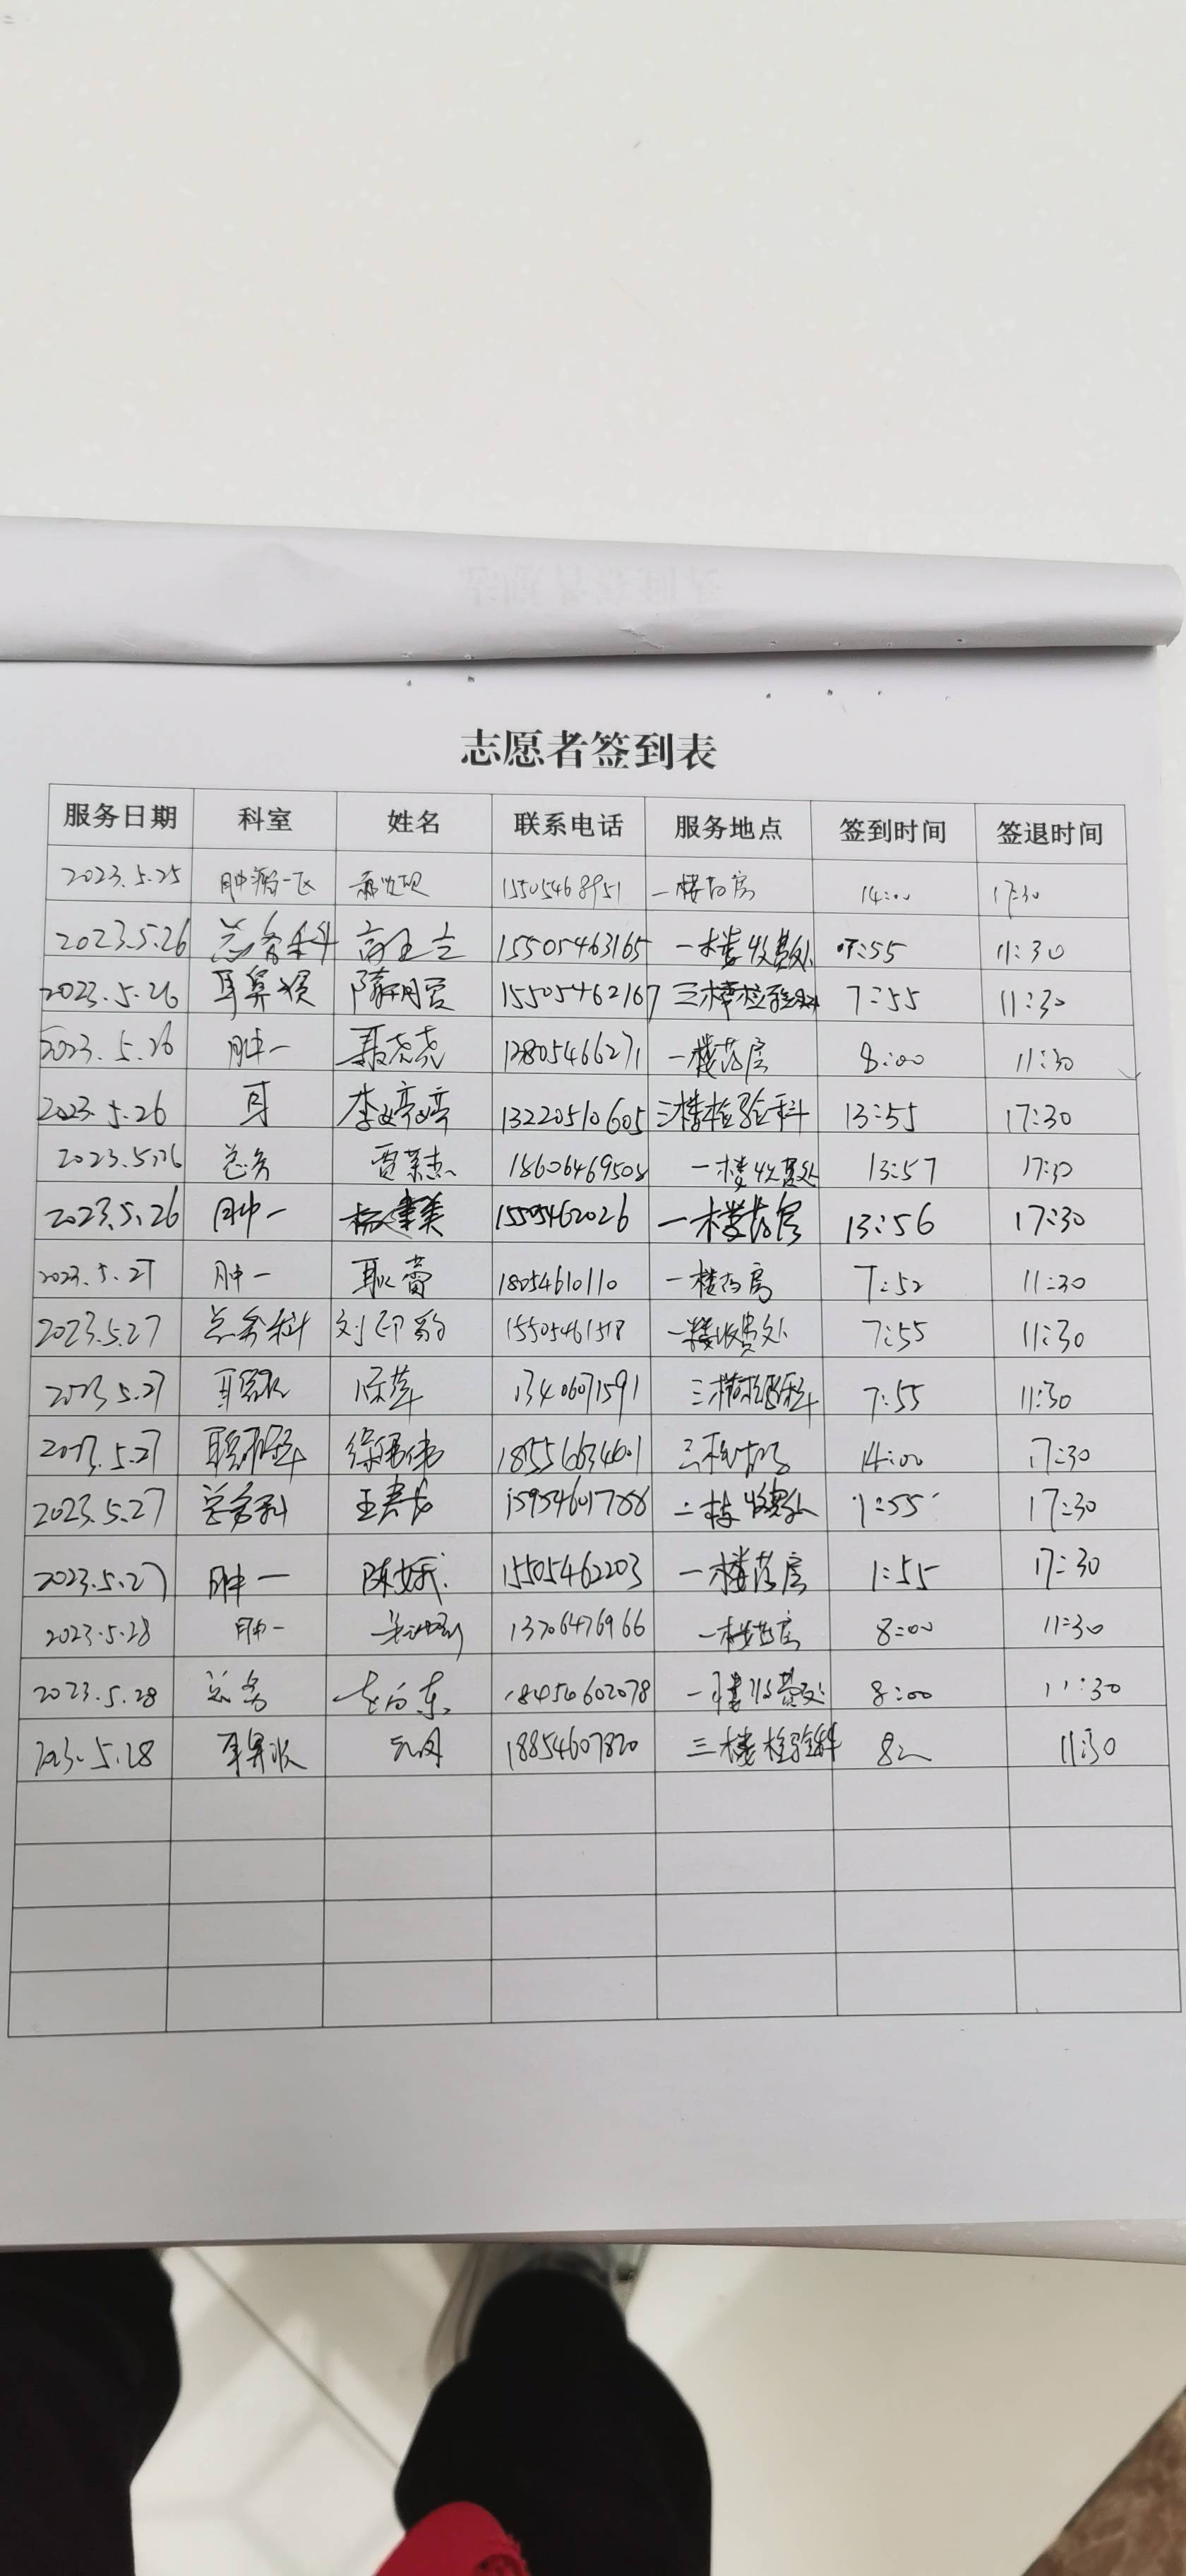 志愿者签到表
服务日期 科室 姓名 联系电话 服务地点 签到时间 签退时间
2023.5.25 肿瘤一区 15505468951 一楼药房 14:00 17:30
2023.5.26 总务科 15505463165 一楼收费处 7:55 11:30
2023.5.26 耳鼻喉 15505462167 三楼检验科 7:55 11:30
2023.5.26 肿一 聂尧尧 13805466271 一楼药房 8:00 11:30
2023.5.26 耳 李婷婷 13220510605 三楼检验科 13:55 17:30
2023.5.26 总务 贾荣杰 18606469508 一楼收费处 13:57 17:30
2023.5.26 肿一 15505462026 一楼药房 13:56 17:30
2023.5.27 肿一 耿蕾 18054610110 一楼药房 7:52 11:30
2023.5.27 总务科 15505461518 一楼收费处 7:55 11:30
2023.5.27 陈萍 13406071591 三楼检验科 7:55 11:30
2023.5.27 14:00 17:30
2023.5.27 总务科 15954601788 一楼收费处 1:55 17:30
2023.5.27 肿一 陈娥 15505462203 一楼药房 1:55 17:30
2023.5.28 肿一 13706476966 一楼药房 8:00 11:30
2023.5.28 总务 18454602078 一楼收费处 8:00 11:30
2023.5.28 耳鼻喉 18854607820 三楼检验科 11:30